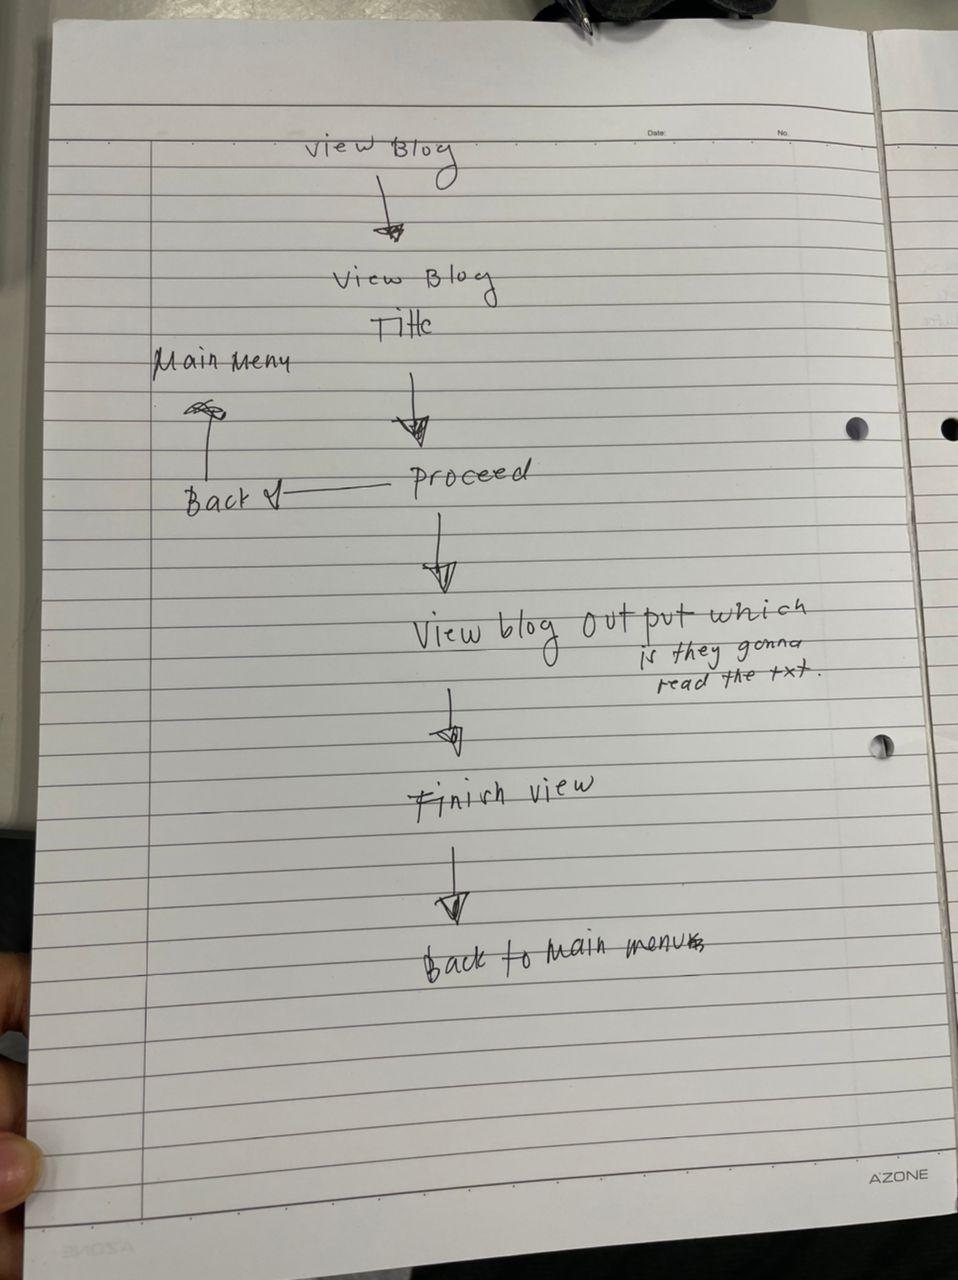 Date:
No.
View Blog
View Blog
Title
Main Menu
Proceed
Back
View blog output which
is they gonna
read the txt.
Finish view
Back to Main menu
A'ZONE